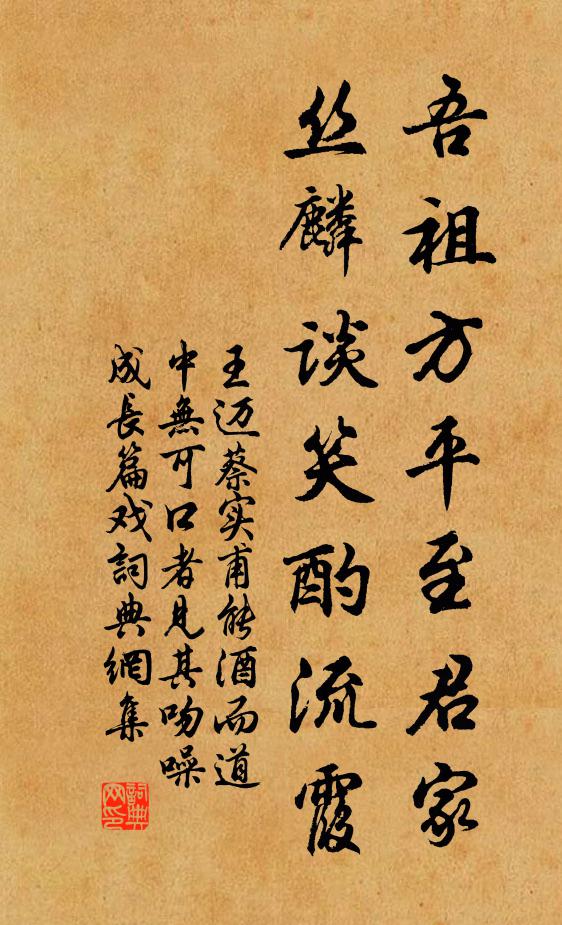 吾祖方平至君家
丝麟谈笑酌流霞
王迈蔡实甫能酒而道
中無可口者见其吻噪
成長篇戏詞典網集
詞典
网印